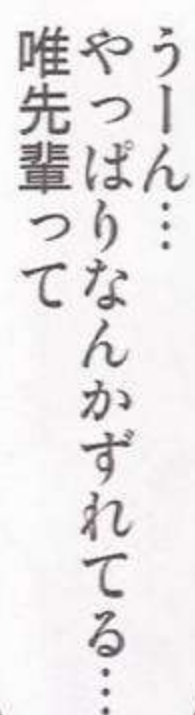 うーん…
やっぱりなんかずれてる…
唯先輩って